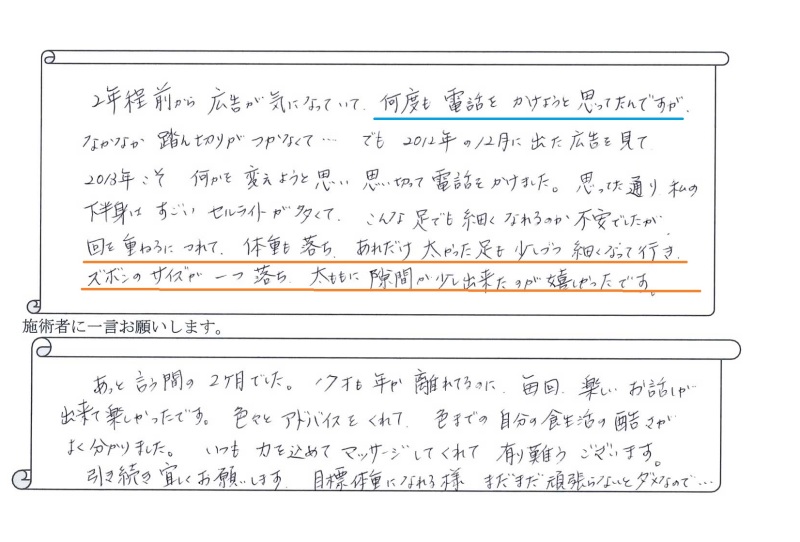 2年程前から広告が気になっていて、何度も電話をかけようと思ってたんですが、
なかなか踏ん切りがつかなくて… でも2012年の12月に出た広告を見て
2013年こそ何かを変えようと思い思い切って電話をかけました。思ってた通り私の
下半身はすごいセルライトが多くて、こんな足でも細くなれるのか不安でしたが
回を重ねるにつれて、体重も落ち、あれだけ太かった足も少しづつ細くなって行き、
ズボンのサイズが一つ落ち、太ももに隙間が少し出来たのが嬉しかったです。
施術者に一言お願いします。
あっと言う間の2ヶ月でした。 年が離れてるのに、毎回、楽しいお話しが
出来て楽しかったです。色々とアドバイスをくれて、 自分の食生活の酷さが
よく分かりました。いつも力を込めてマッサージしてくれて有り難うございます。
引き続き宜しくお願いします。目標体重になれる様、まだまだ頑張らないとダメなので…